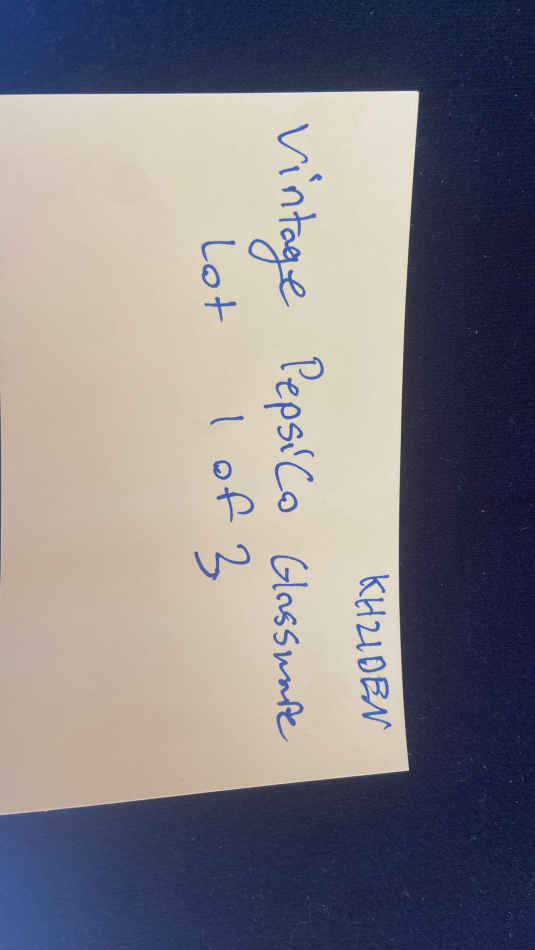 KH21DEN
Vintage PepsiCo Glassware
Lot 1 of 3